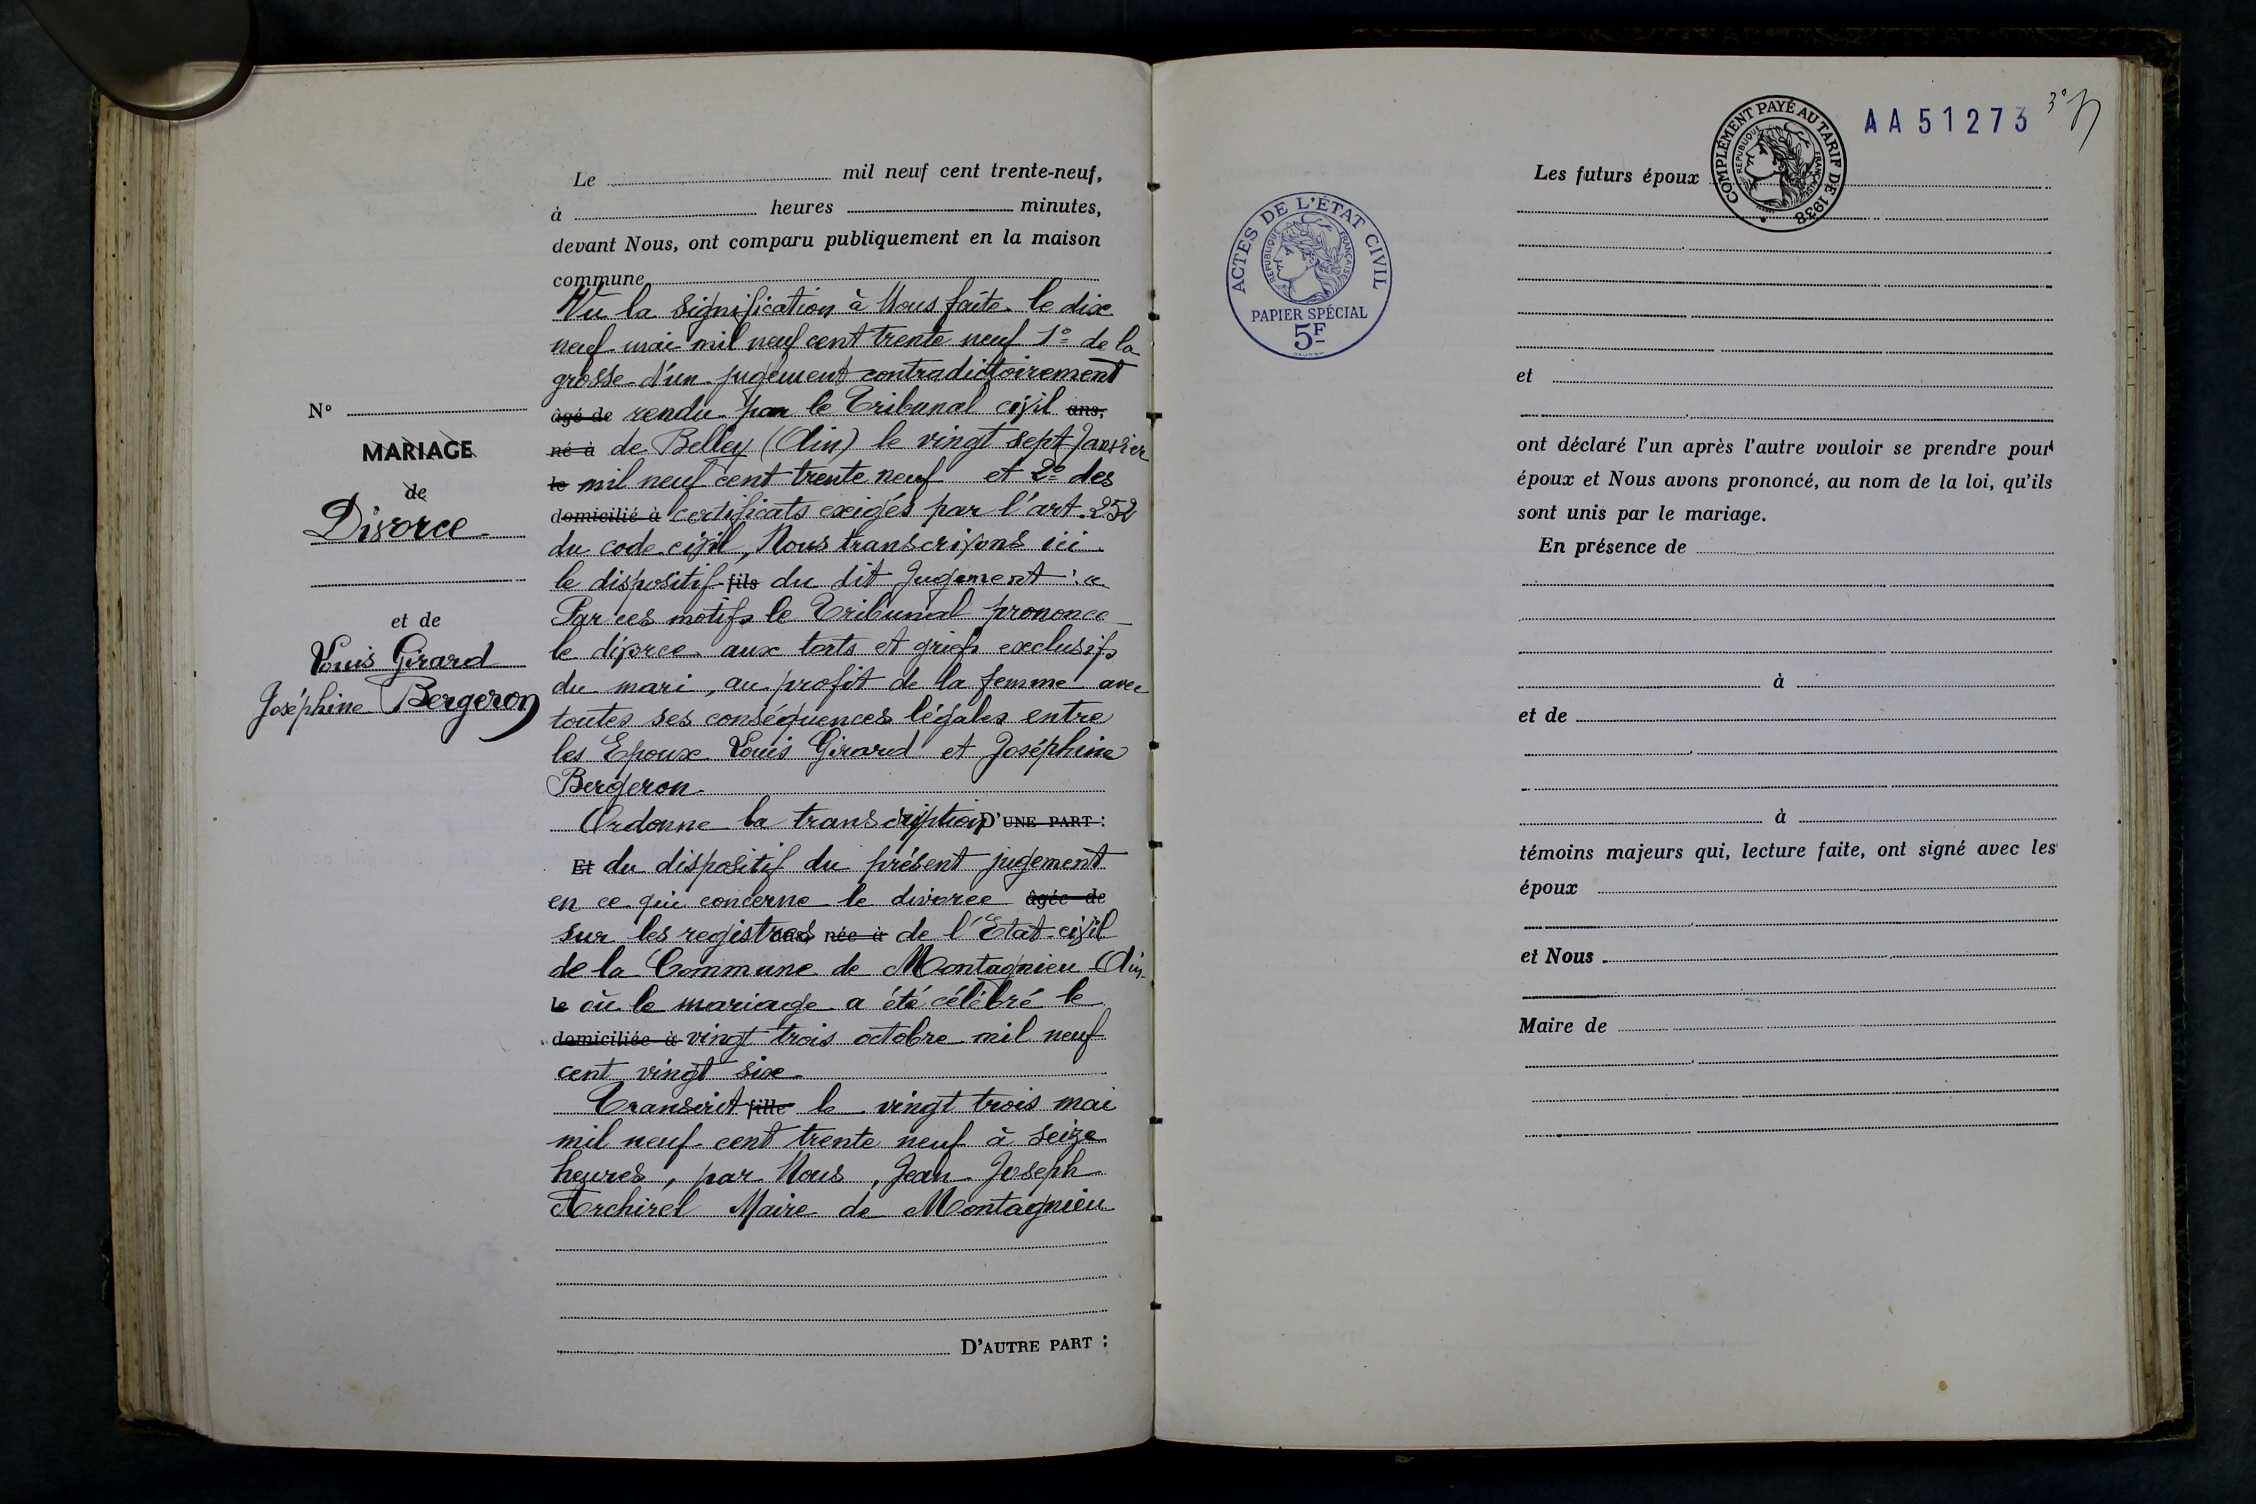 Le mil neuf cent trente-neuf,
à heures minutes,
devant Nous, ont comparu publiquement en la maison
commune
Vu la signification à Nous faite le dix
neuf mai mil neuf cent trente neuf 1º de la
grosse d'un jugement contradictoirement
âgé de rendu par le Tribunal civil ans,
né à de Belley (Ain) le vingt sept Janvier
le mil neuf cent trente neuf et 2º des
domicilié à certificats exigés par l'art. 252
du code civil, Nous transcrivons ici
le dispositif fils du dit Jugement : "
Par ces motifs le Tribunal prononce
le divorce aux torts et griefs exclusifs
du mari, au profit de la femme avec
toutes ses conséquences légales entre
les Epoux Louis Girard et Joséphine
Bergeron.
Ordonne la transcription D'UNE PART :
Et du dispositif du présent jugement
en ce qui concerne le divorce âgée de
sur les registres ans, née à de l'Etat-civil
de la Commune de Montagnieu (Ain
le où le mariage a été célébré le
domiciliée à vingt trois octobre mil neuf
cent vingt six.
Transcrit fille le vingt trois mai
mil neuf cent trente neuf à seize
heures, par Nous, Jean Joseph
Archirel Maire de Montagnieu
D'AUTRE PART :
Nº
MARIAGE
de
Divorce
et de
Louis Girard
Joséphine Bergeron
ACTES DE L'ÉTAT CIVIL
RÉPUBLIQUE FRANÇAISE
PAPIER SPÉCIAL
5F
COMPLÉMENT PAYÉ AU TARIF DE 1938
RÉPUBLIQUE FRANÇAISE
AA51273
3º
Les futurs époux
et
ont déclaré l'un après l'autre vouloir se prendre pour
époux et Nous avons prononcé, au nom de la loi, qu'ils
sont unis par le mariage.
En présence de
à
et de
à
témoins majeurs qui, lecture faite, ont signé avec les
époux
et Nous
Maire de